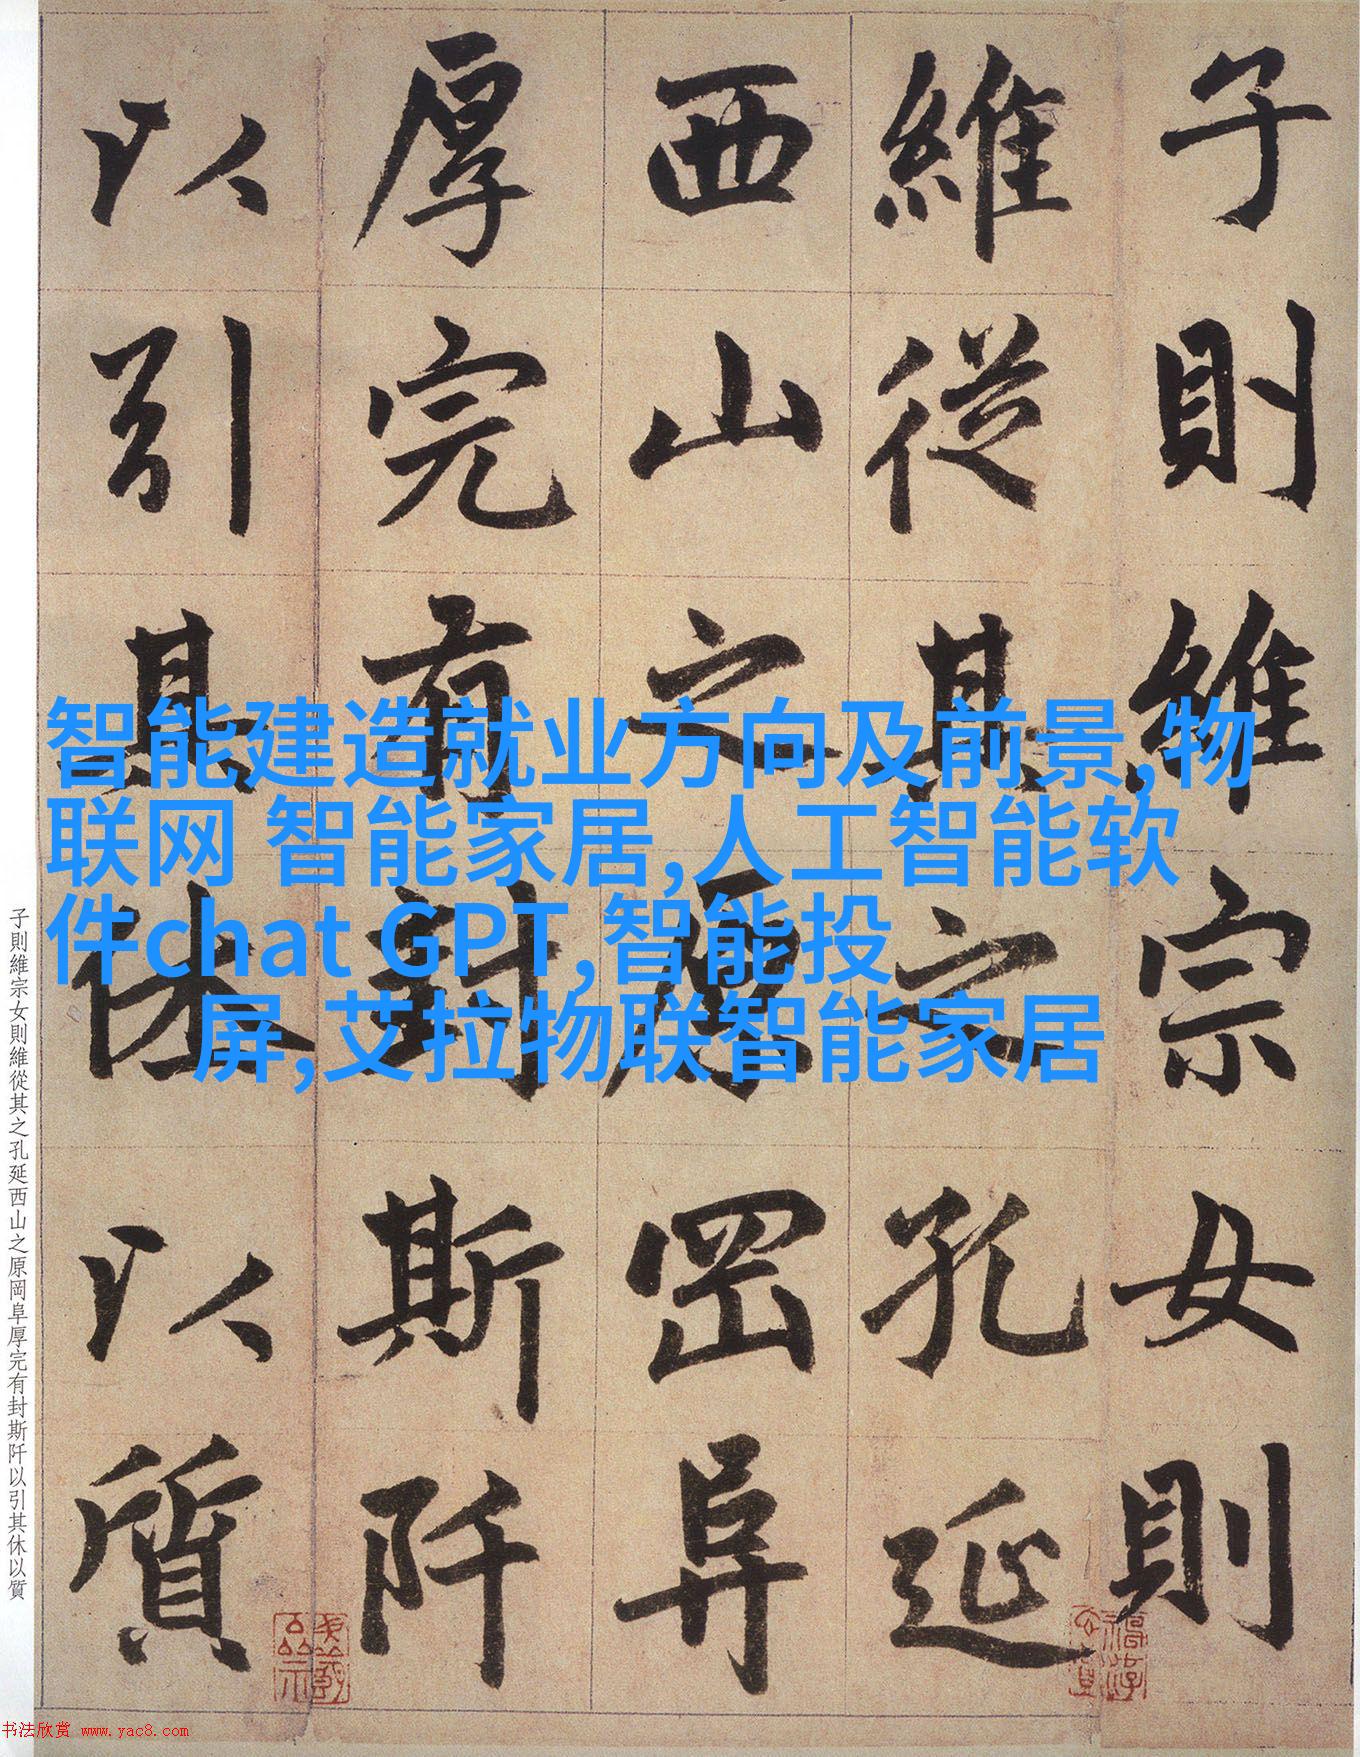 子則維宗女則
維從其之孔延
西山之原岡阜
厚完有封斯阡
以引其休以質
智能建造就业方向及前景,物
联网 智能家居,人工智能软
件chat GPT,智能投
屏,艾拉物联智能家居
子則維宗女則維從其之孔延西山之原岡阜厚完有封斯阡以引其休以質
书法欣赏 www.yac8.com